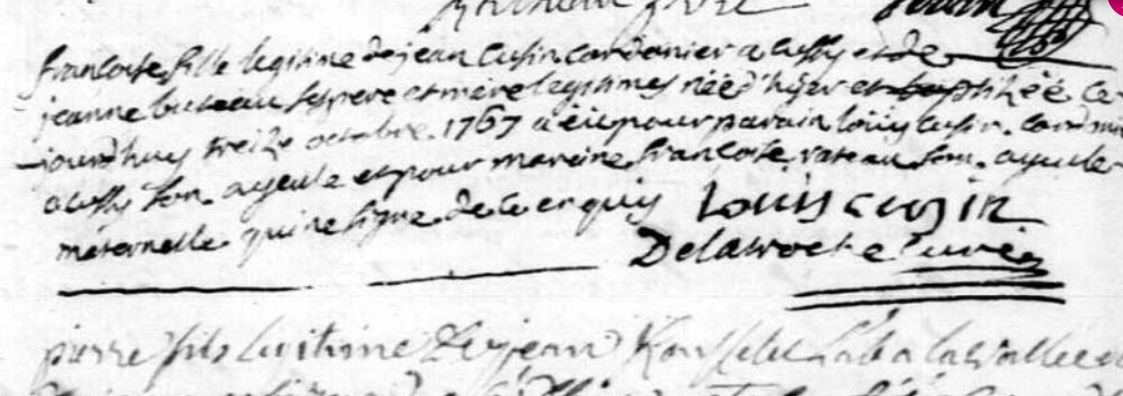 francoise fille legitime de jean cusin cordonier a cussy et de
jeanne buteau ses pere et mere legitimes néé d'hÿer et baptiséé ce
jourdhuy treize octobre 1767 a eü pour parain loüÿ cusin cordonnier
a cussy son ayeule et pour maraine francoise rateau son ayeule
maternelle qui ne signe de ce enquis Louis cusin
Delaroche curé
pierre fils legitime de jean a la vallée